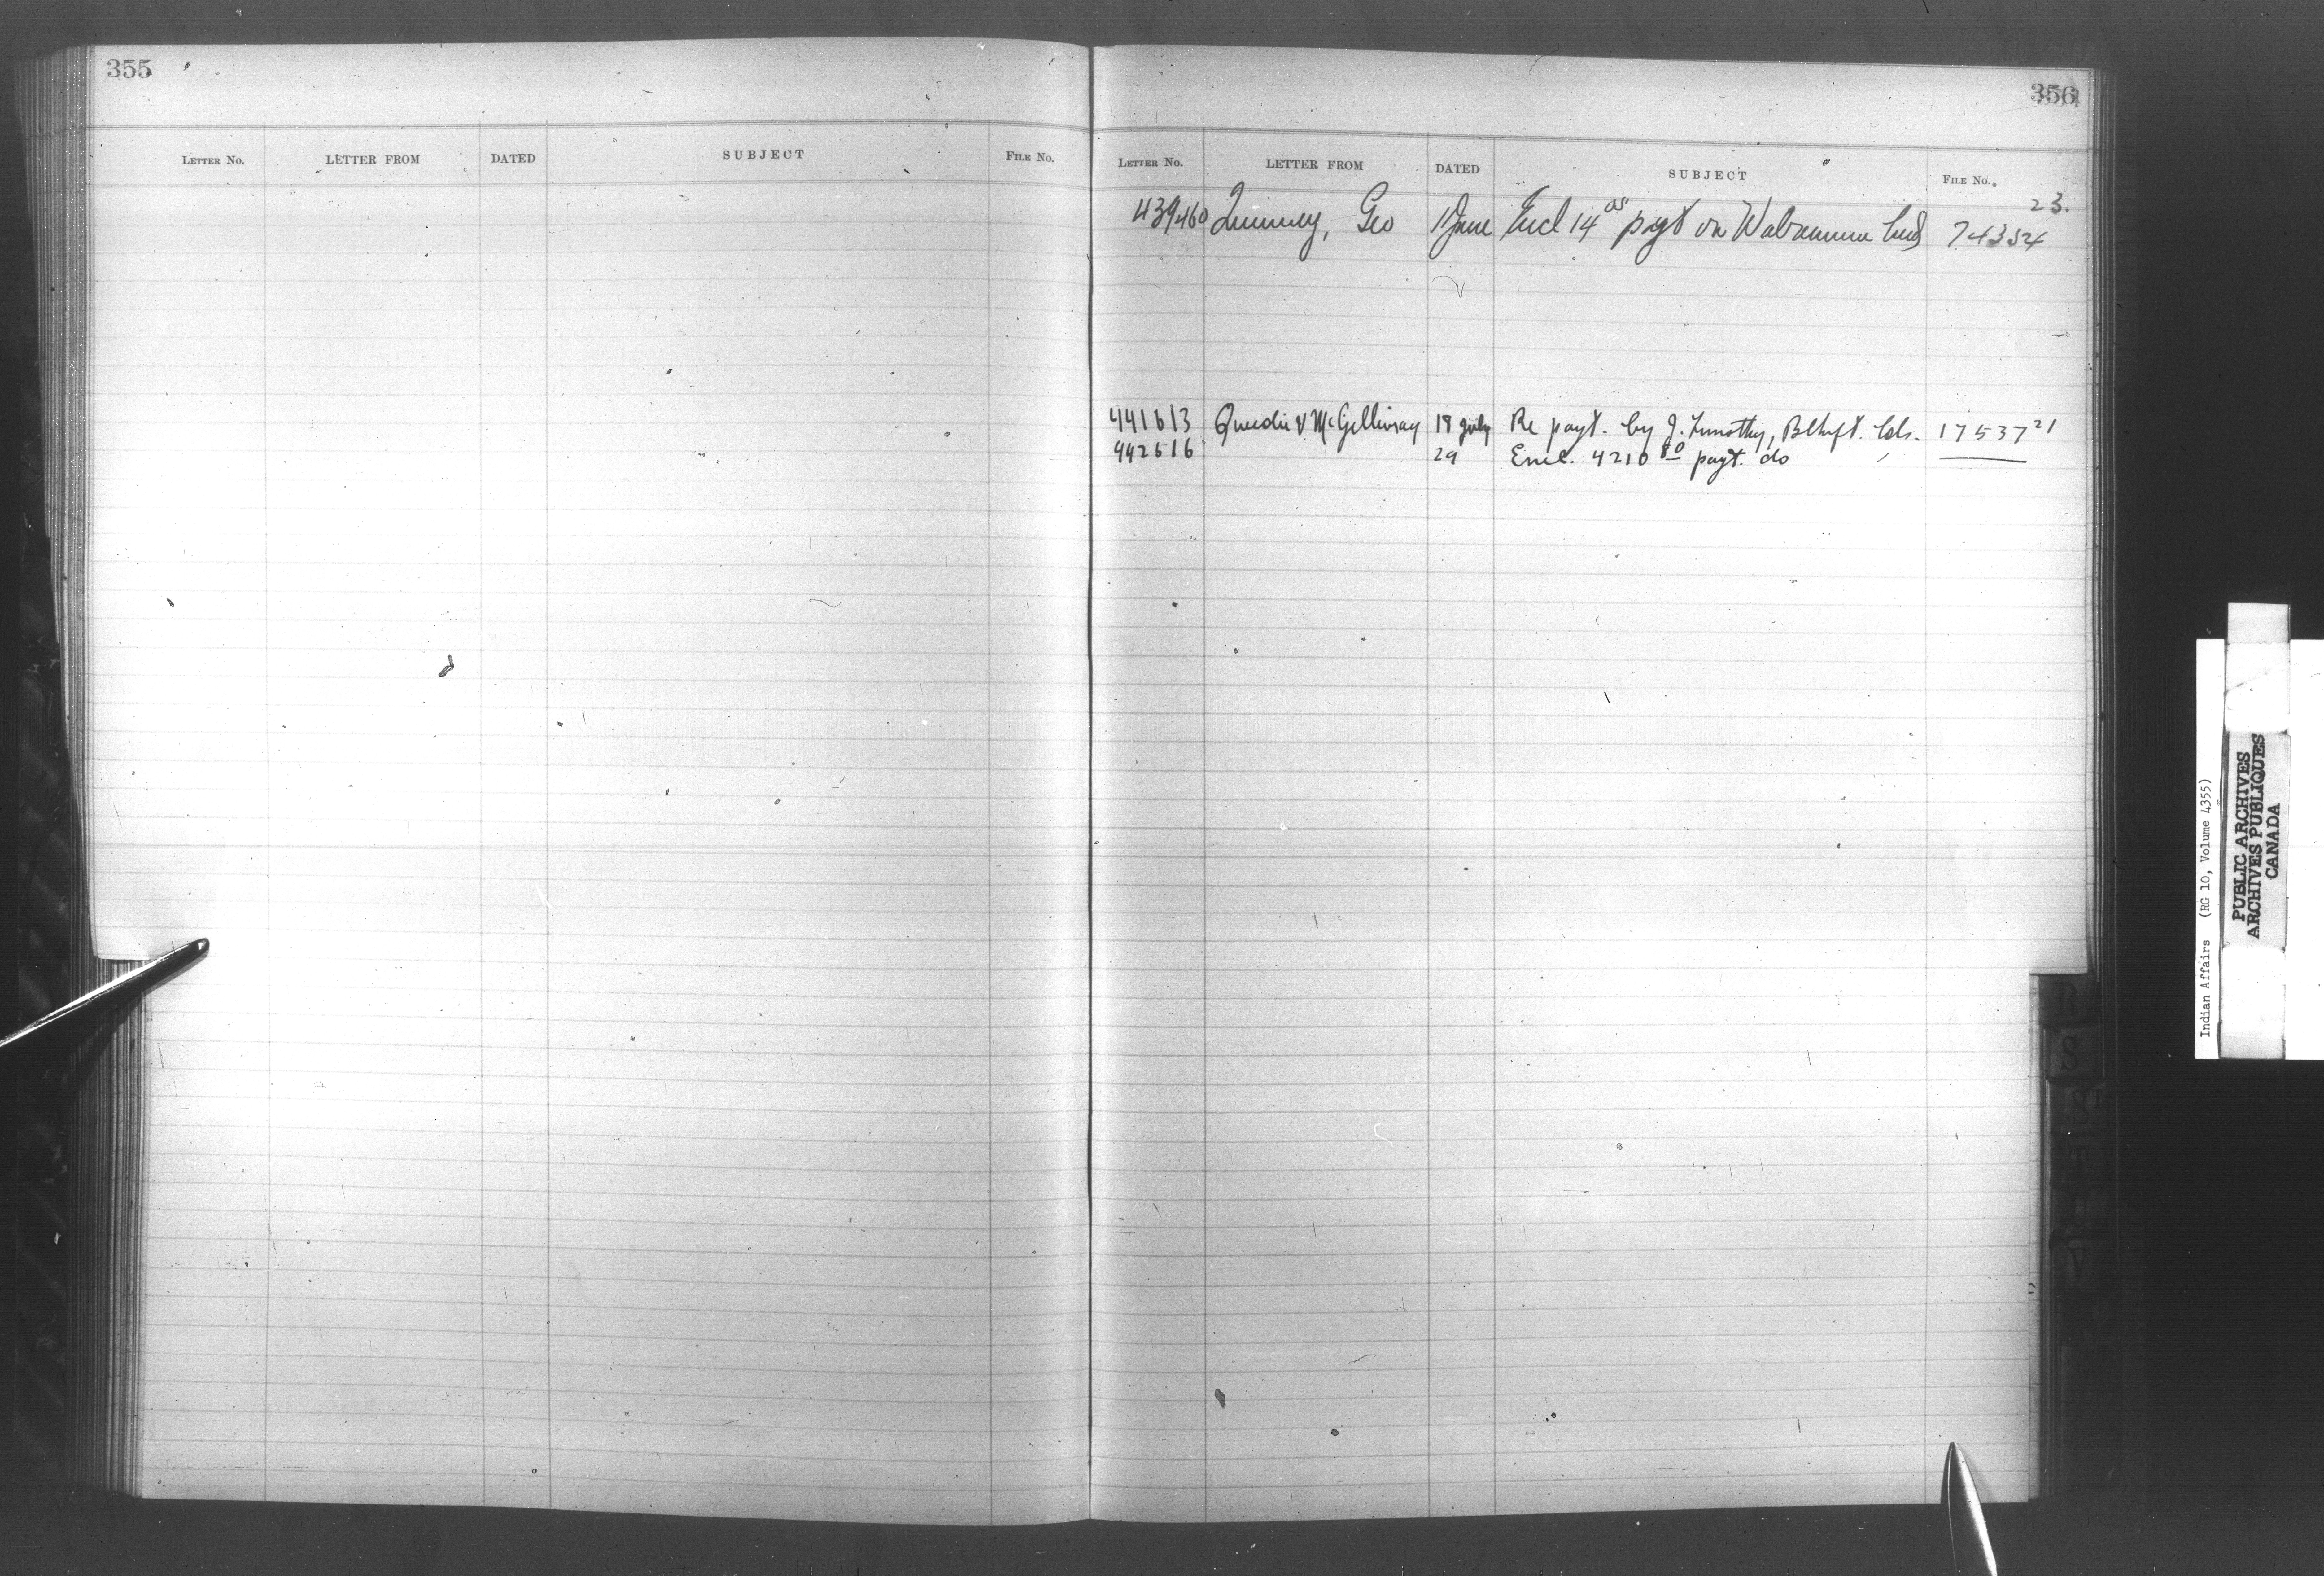 355
LETTER No. LETTER FROM DATED SUBJECT FILE No.
356
LETTER No. LETTER FROM DATED SUBJECT FILE No.
23.
439460 Geo June Encl 14 05 payt on Wabamun 74354
441613 & McGillivray 18 July Re payt. by J. Timothy, 17537 21
442516 29 Encl. 4210 80 payt. do
R
S
T
U
V
Indian Affairs (RG 10, Volume 4355)
PUBLIC ARCHIVES
ARCHIVES PUBLIQUES
CANADA